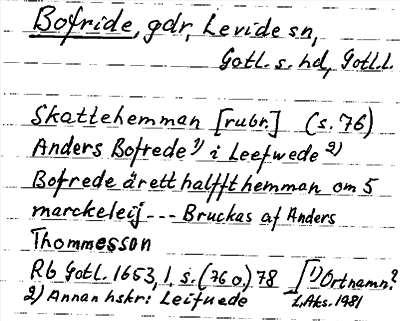 Bofride, gdr, Levide sn,
Gotl. s. hd, Gotl. l.
Skattehemman [rubr.] (s. 76)
Anders Bofrede 1) i Leefwede 2)
Bofrede är ett halfft hemman om 5
marckeleij --- Bruckas af Anders
Thommesson
Rb Gotl. 1653, 1, s. (76 o.) 78 [1) Ortnamn?
2) Annan hskr: Leifuede L. Aks. 1981